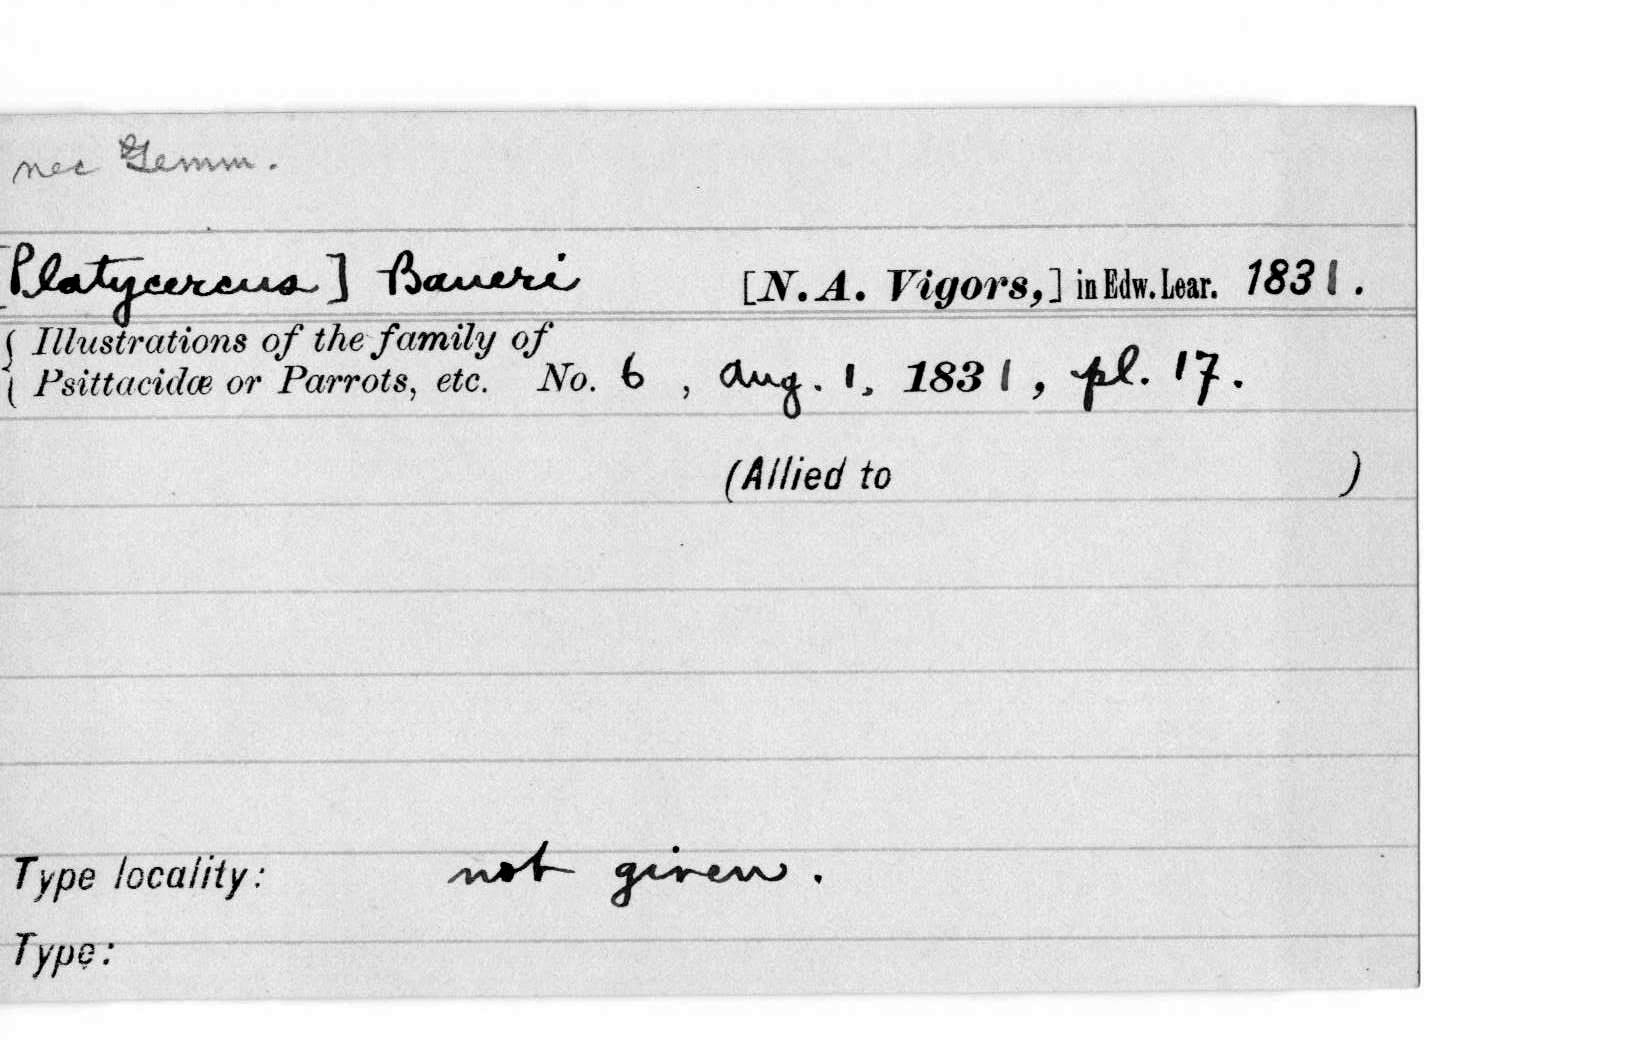 nec Temm.
[Platycercus] Baueri [N. A. Vigors,] in Edw. Lear. 1831.
Illustrations of the family of
Psittacidæ or Parrots, etc. No. 6, Aug. 1, 1831, pl. 17.
(Allied to )
Type locality: not given.
Type: